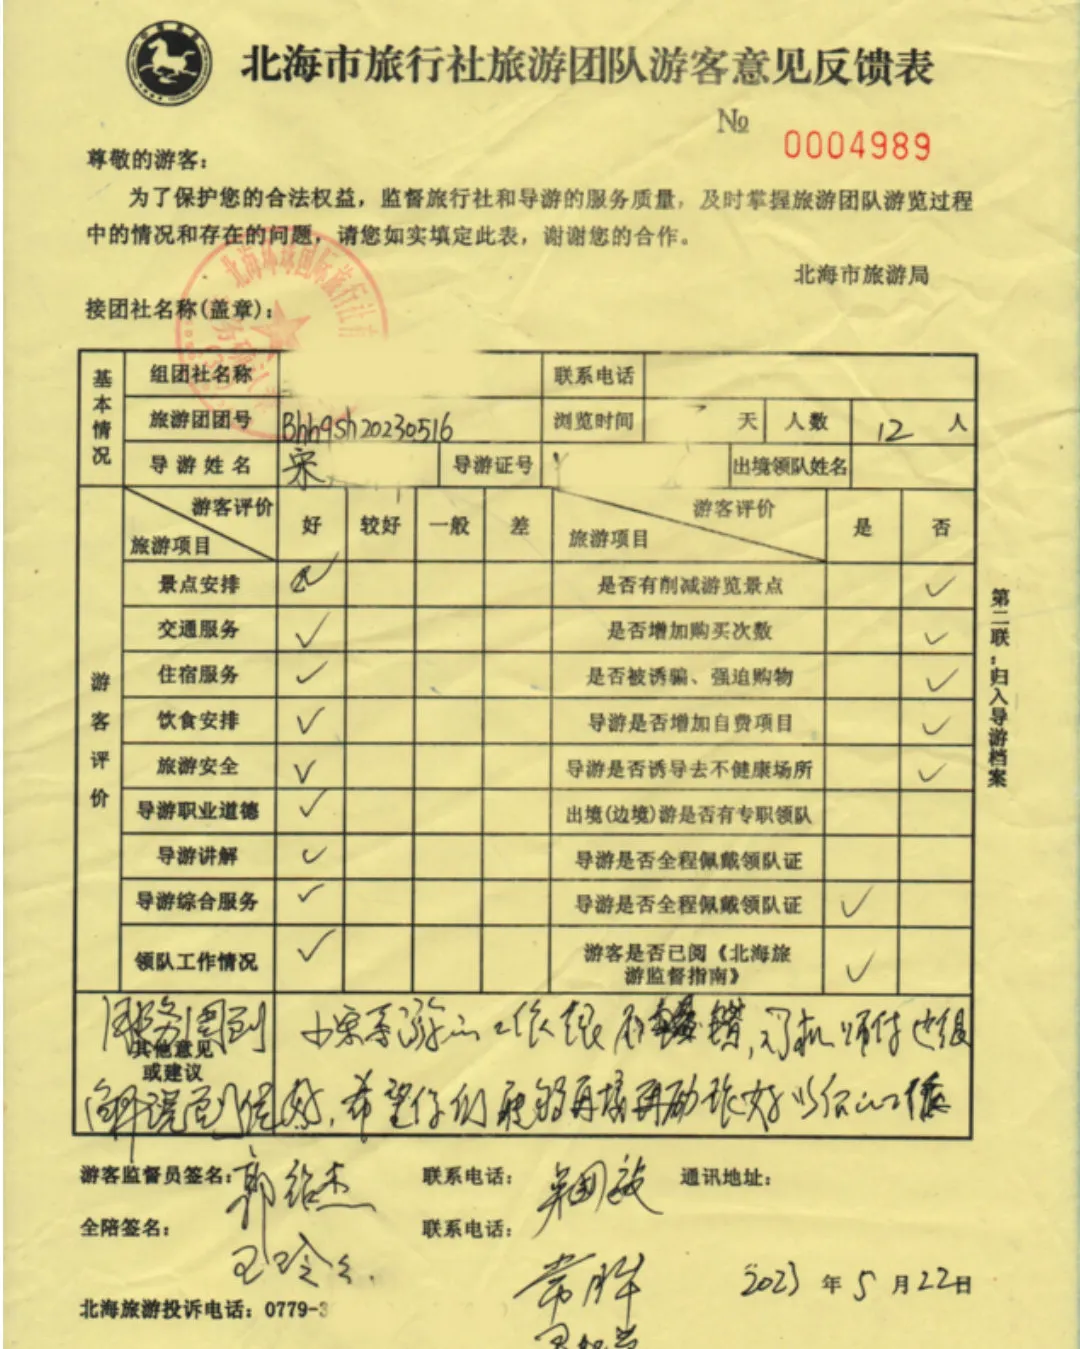 北海市旅行社旅游团队游客意见反馈表
№ 0004989
尊敬的游客：
为了保护您的合法权益，监督旅行社和导游的服务质量，及时掌握旅游团队游览过程
中的情况和存在的问题，请您如实填定此表，谢谢您的合作。
北海市旅游局
接团社名称(盖章)：
基本情况
组团社名称 联系电话
旅游团团号 Bhhqsh20230516 浏览时间 天 人数 12 人
导游姓名 宋 导游证号 出境领队姓名
游客评价
游客评价 旅游项目 好 较好 一般 差 游客评价 旅游项目 是 否
景点安排 ✓ 是否有削减游览景点 ✓
交通服务 ✓ 是否增加购买次数 ✓
住宿服务 ✓ 是否被诱骗、强迫购物 ✓
饮食安排 ✓ 导游是否增加自费项目 ✓
旅游安全 ✓ 导游是否诱导去不健康场所 ✓
导游职业道德 ✓ 出境(边境)游是否有专职领队
导游讲解 ✓ 导游是否全程佩戴领队证
导游综合服务 ✓ 导游是否全程佩戴领队证 ✓
领队工作情况 ✓ 游客是否已阅《北海旅
游监督指南》 ✓
第二联：归入导游档案
其他意见
或建议
服务周到 小宋导游的工作很 司机师傅也很
讲解到位 好，希望你们能够再接再励 做好以后的工作
游客监督员签名： 郭绍杰 联系电话： 通讯地址：
全陪签名： 王玲 联系电话：
常胜
2023 年 5 月 22 日
北海旅游投诉电话：0779-3